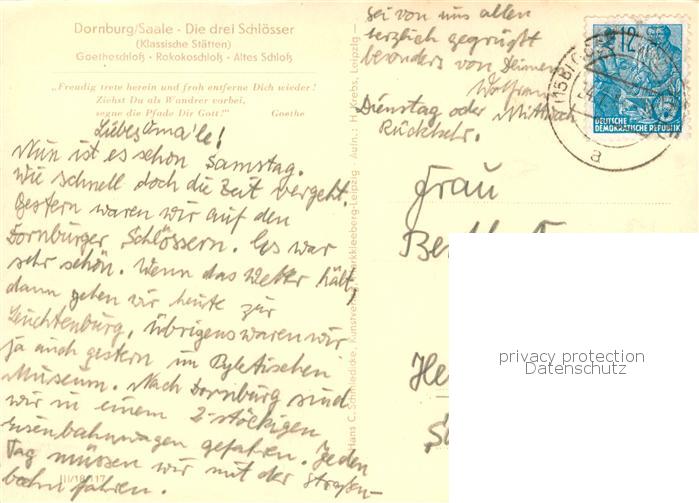 Dornburg/Saale - Die drei Schlösser
(Klassische Stätten)
Goetheschloß - Rokokoschloß - Altes Schloß
„Freudig trete herein und froh entferne Dich wieder!
Ziehst Du als Wandrer vorbei,
segne die Pfade Dir Gott!" Goethe
Liebes Oma'le!
Nun ist es schon Samstag.
Wie schnell doch die Zeit vergeht.
Gestern waren wir auf den
Dornburger Schlössern. Es war
sehr schön. Wenn das Wetter hält,
dann gehen wir heute zur
Leuchtenburg, übrigens waren wir
ja auch gestern im Phyletischen
Museum. Nach Dornburg sind
wir in einem 2-stöckigen
Eisenbahnwagen gefahren. Jeden
Tag müssen wir mit der Straßen-
bahn fahren.
III/18/117
Hans C. Schmiedicke, Kunstverlag, Markkleeberg-Leipzig Aufn.: H. Krebs, Leipzig
Sei von uns allen
herzlich gegrüßt
besonders von Deinem
Wolfram
Dienstag oder Mittwoch
Rückkehr.
DEUTSCHE
DEMOKRATISCHE REPUBLIK
12
a
Frau
privacy protection
Datenschutz